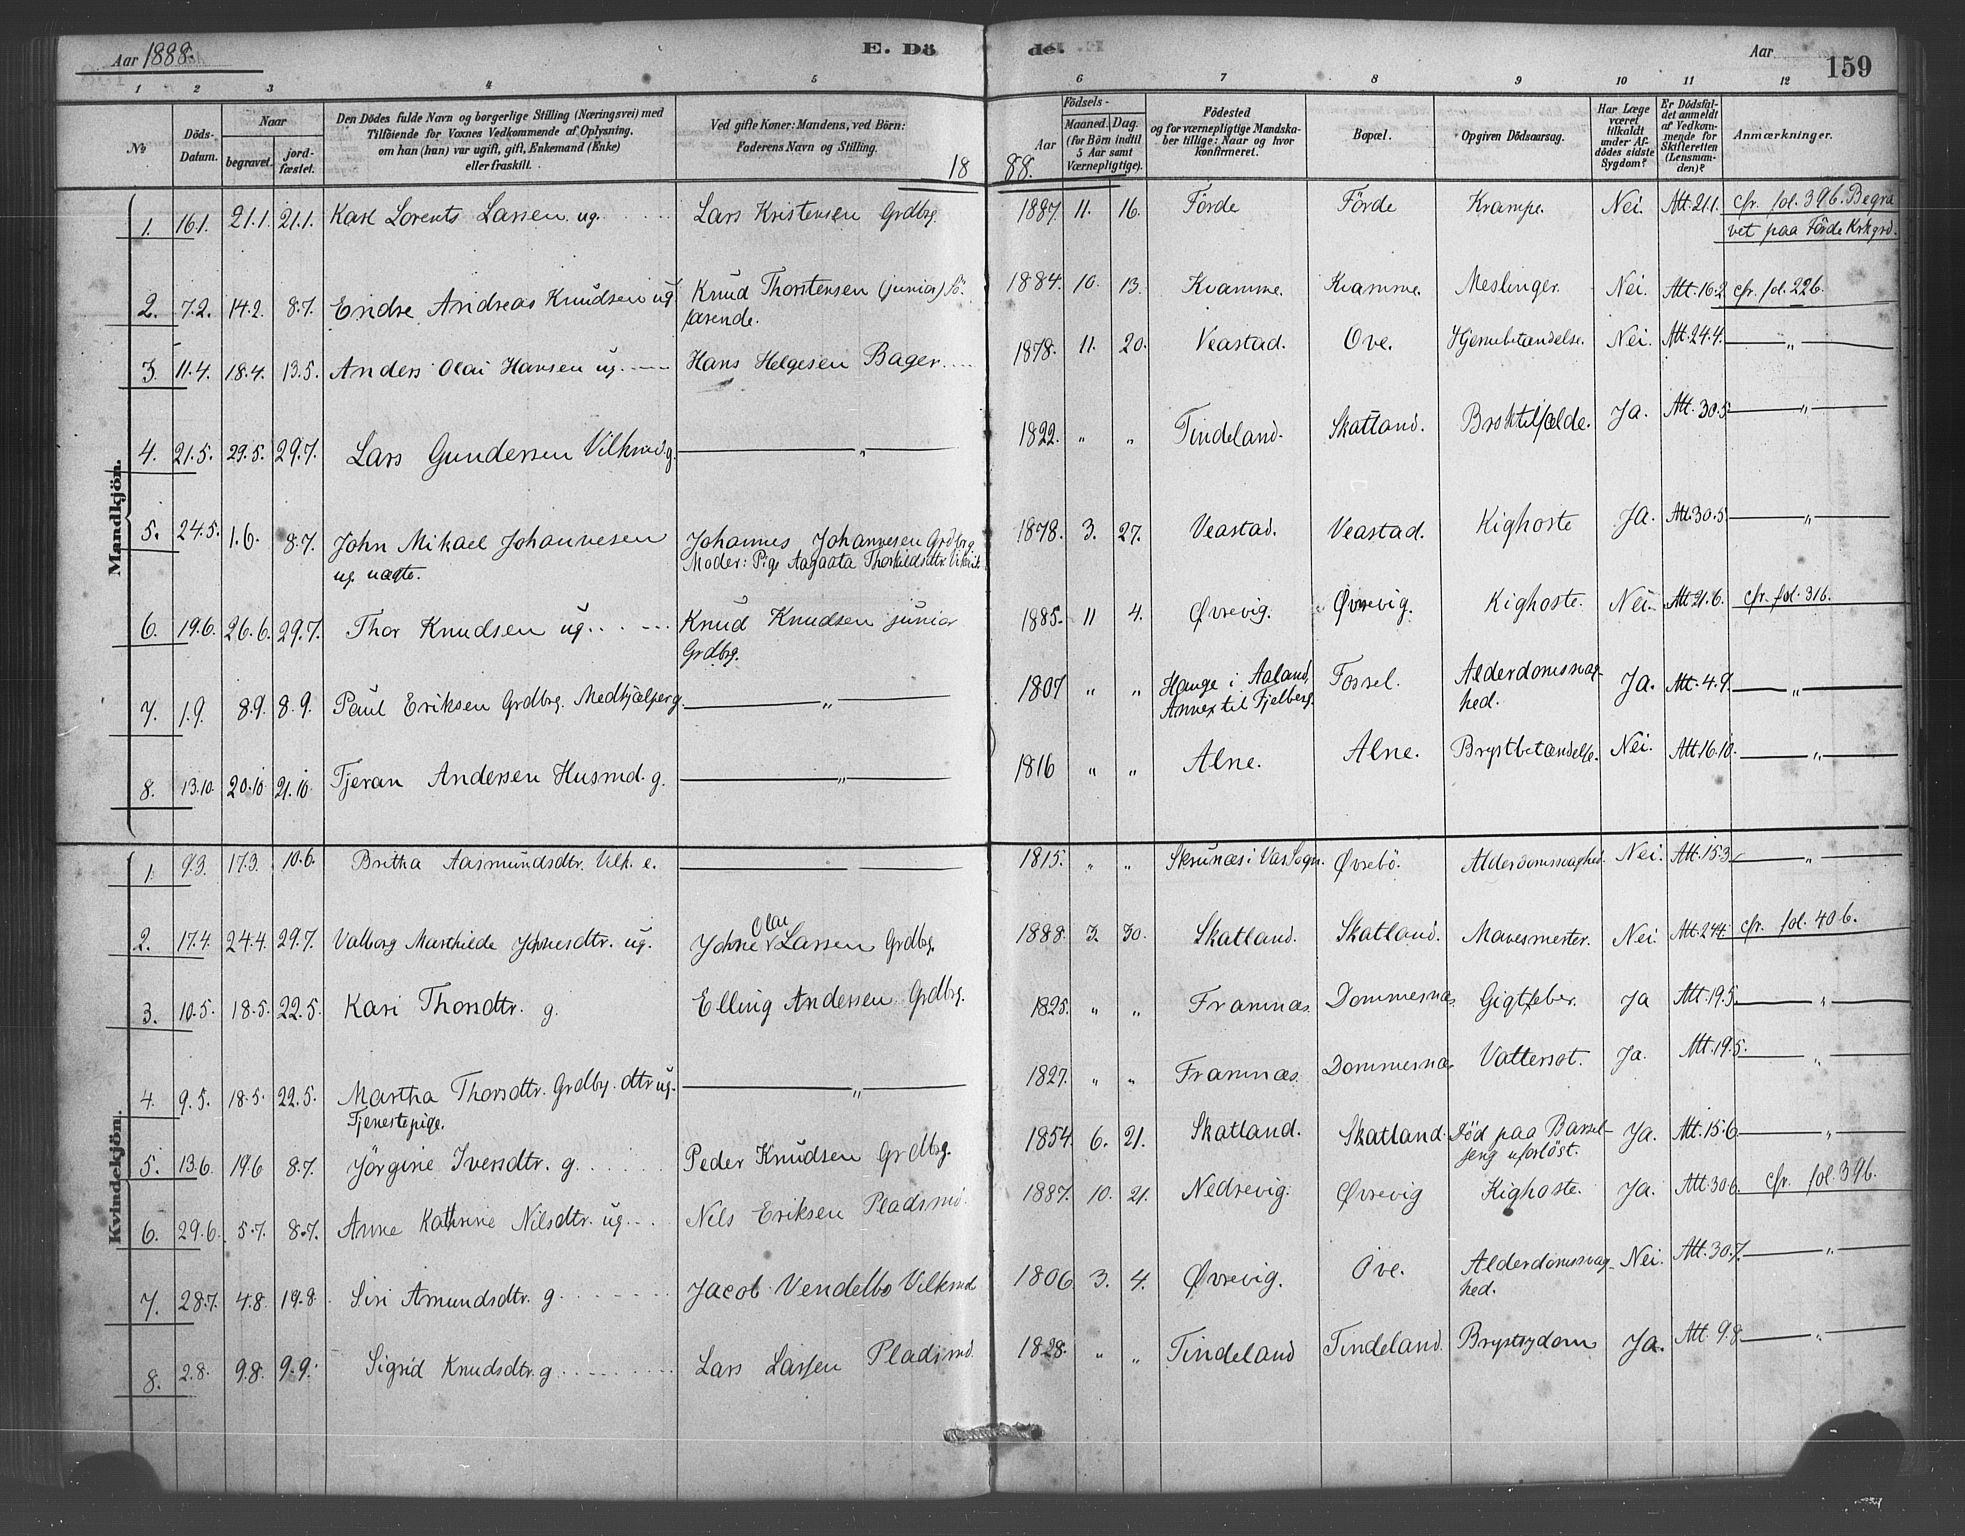 Aar 1888. E. Dö de. Aar 159
1 2 3 4 5 6 7 8 9 10 11 12
No Döds-Datum. Naar begravet. jordfæstet. Den Dödes fulde Navn og borgerlige Stilling (Næringsvei) med Tilföiende for Voxnes Vedkommende af Oplysning, om han (hun) var ugift, gift, Enkemand (Enke) eller fraskilt. Ved gifte Koner: Mandens, ved Börn: Faderens Navn og Stilling. Födsels- Aar Maaned. Dag. (for Börn indtil 5 Aar samt Værnepligtige). Födested og for værnepligtige Mandskaber tillige: Naar og hvor konfirmeret. Bopæl. Opgiven Dödsaarsag. Har Læge været tilkaldt under Afdödes sidste Sygdom? Er Dödsfaldet anmeldt af Vedkommende for Skifteretten (Lensmanden)? Anmærkninger.
18 88.
Mandkjön.
1. 16.1. 21.1. 21.1. Karl Lorents Larsen ug. Lars Kristensen Grdbrg. 1887. 11. 16. Förde Förde Krampe. Nei. Att. 21.1. cfr. fol. 396. Begra
vet paa Förde Krkgrd.
2. 7.2. 14.2. 8.7. Endre Andreas Knudsen ug. Knud Thorstensen (junior) Sö
farende. 1884. 10. 13. Kvamme. Kvamme. Meslinger. Nei. Att. 16.2. cfr. fol. 226.
3. 11.4. 18.4. 13.5. Anders Olai Hansen ug. Hans Helgesen Bager. 1878. 11. 20. Veastad. Ove. Hjernebetændelse. Nei. Att. 24.4. „
4. 21.5. 29.5. 29.7. Lars Gundersen Vilkmd g. „ 1822. „ „ Tindeland. Skatland. Broktilfælde. Ja. Att. 30.5. „
5. 24.5. 1.6. 8.7. John Mikael Johannesen
ug. uægte. Johannes Johannesen Grdbrg.
Moder: Pige Aagaata Thorkildsdtr. 1878. 3. 27. Veastad. Veastad. Kighoste Ja. Att. 30.5. „
6. 19.6. 26.6. 29.7. Thor Knudsen ug. Knud Knudsen junior
Grdbrg. 1885. 11 4. Øvrevig. Øvrevig. Kighoste. Nei. Att. 21.6. cfr. fol. 316.
7. 1.9. 8.9. 8.9. Paul Eriksen Grdbrg. Medhjælper g. „ 1807 „ „ Hauge i Aaland,
Annex til Fjelberg. Fossel. Alderdomssvag-
hed. Ja. Att. 4.9. „
8. 13.10. 20.10 21.10 Tjeran Andersen Husmd. g. „ 1816 „ „ Alne. Alne. Brystbetændelse. Nei. Att. 16.10. „
Kvindekjön.
1. 9.3. 17.3. 10.6. Britha Aasmundsdtr. Vilk. e. „ 1815. „ „ Skrunæs i Vas Sogn. Øvrebö. Alderdomssvaghed. Nei. Att. 15.3. „
2. 17.4. 24.4. 29.7. Valborg Marthilde Johnesdtr. ug. Johne Olai Larsen Grdbrg. 1888. 3. 30. Skatland. Skatland. Mavesmerter. Nei. Att. 24.4. cfr. fol. 406.
3. 10.5. 18.5. 22.5. Kari Thorsdtr. g. Elling Andersen Grdbrg. 1825. „ „ Framnæs. Dommesnæs. Gigtfeber. Ja Att. 19.5. „
4. 9.5. 18.5. 22.5. Martha Thorsdtr. Grdbrg. dtr ug.
Tjenestepige. „ 1827. „ „ Framnæs. Dommesnæs. Vattersot. Ja. Att. 19.5. „
5. 13.6. 19.6 8.7. Jörgine Iversdtr. g. Peder Knudsen Grdbrg. 1854. 6. 21. Skatland. Skatland. Död paa Barsel-
seng uforlöst. Ja. Att. 15.6 „
6. 29.6. 5.7. 8.7. Anne Kathrine Nilsdtr. ug. Nels Eriksen Pladsmd. 1887. 10. 21. Nedrevig. Øvrevig Kighoste. Ja. Att. 30.6. cfr. fol. 396.
7. 28.7. 4.8. 19.8. Siri Amundsdtr. g. Jacob Vendelbo Vilkmd 1806. 3. 4. Øvrevig. Ove. Alderdomssvag-
hed. Nei. Att. 30.7. „
8. 2.8. 9.8. 9.9. Sigrid Knudsdtr. g. Lars Larsen Pladsmd. 1828. „ „ Tindeland Tindeland. Brystsygdom Ja. Att. 9.8. „